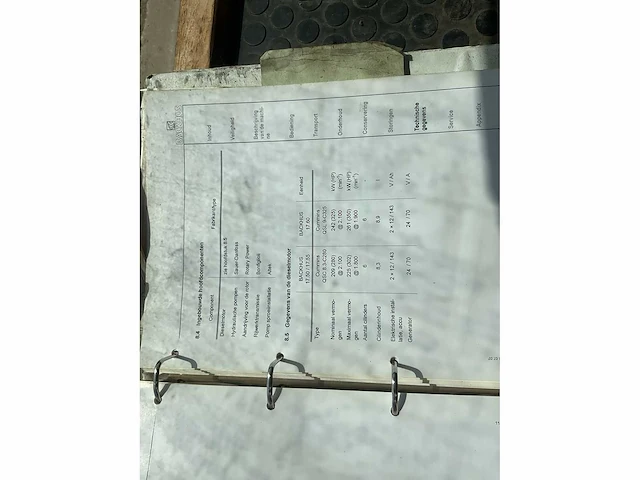 BACKHUS
Inhoud
Veiligheid
Beschrijving
van de machi-
ne
Bediening
Transport
Onderhoud
Conservering
Storingen
Technische
gegevens
Service
Appendix
8.4 Ingebouwde hoofdcomponenten
Component Fabrikant/type
Dieselmotor zie hoofdstuk 8.5
Hydraulische pompen Sauer-Danfoss
Aandrijving voor de rotor Rotary Power
Rijwerktransmissie Bonfiglioli
Pomp sproeiinstallatie
8.5 Gegevens van de dieselmotor
BACKHUS BACKHUS Eenheid
17.50 / 17.55 17.60
Type Cummins Cummins
QSC 8.3-C280 QSL 9-C325
Nominaal vermo- 209 (280) 242 (325) kW (HP)
gen @ 2.100 @ 2.100 (min⁻¹)
Maximaal vermo- kW (HP)
gen @ 1.800 @ 1.900 (min⁻¹)
Aantal cilinders 6 6 -
Cilinderinhoud 8,3 8,9 l
Elektrische instal- 2 × 12 / 143 2 × 12 / 143 V / Ah
latie, accu
Generator 24 / 70 24 / 70 V / A